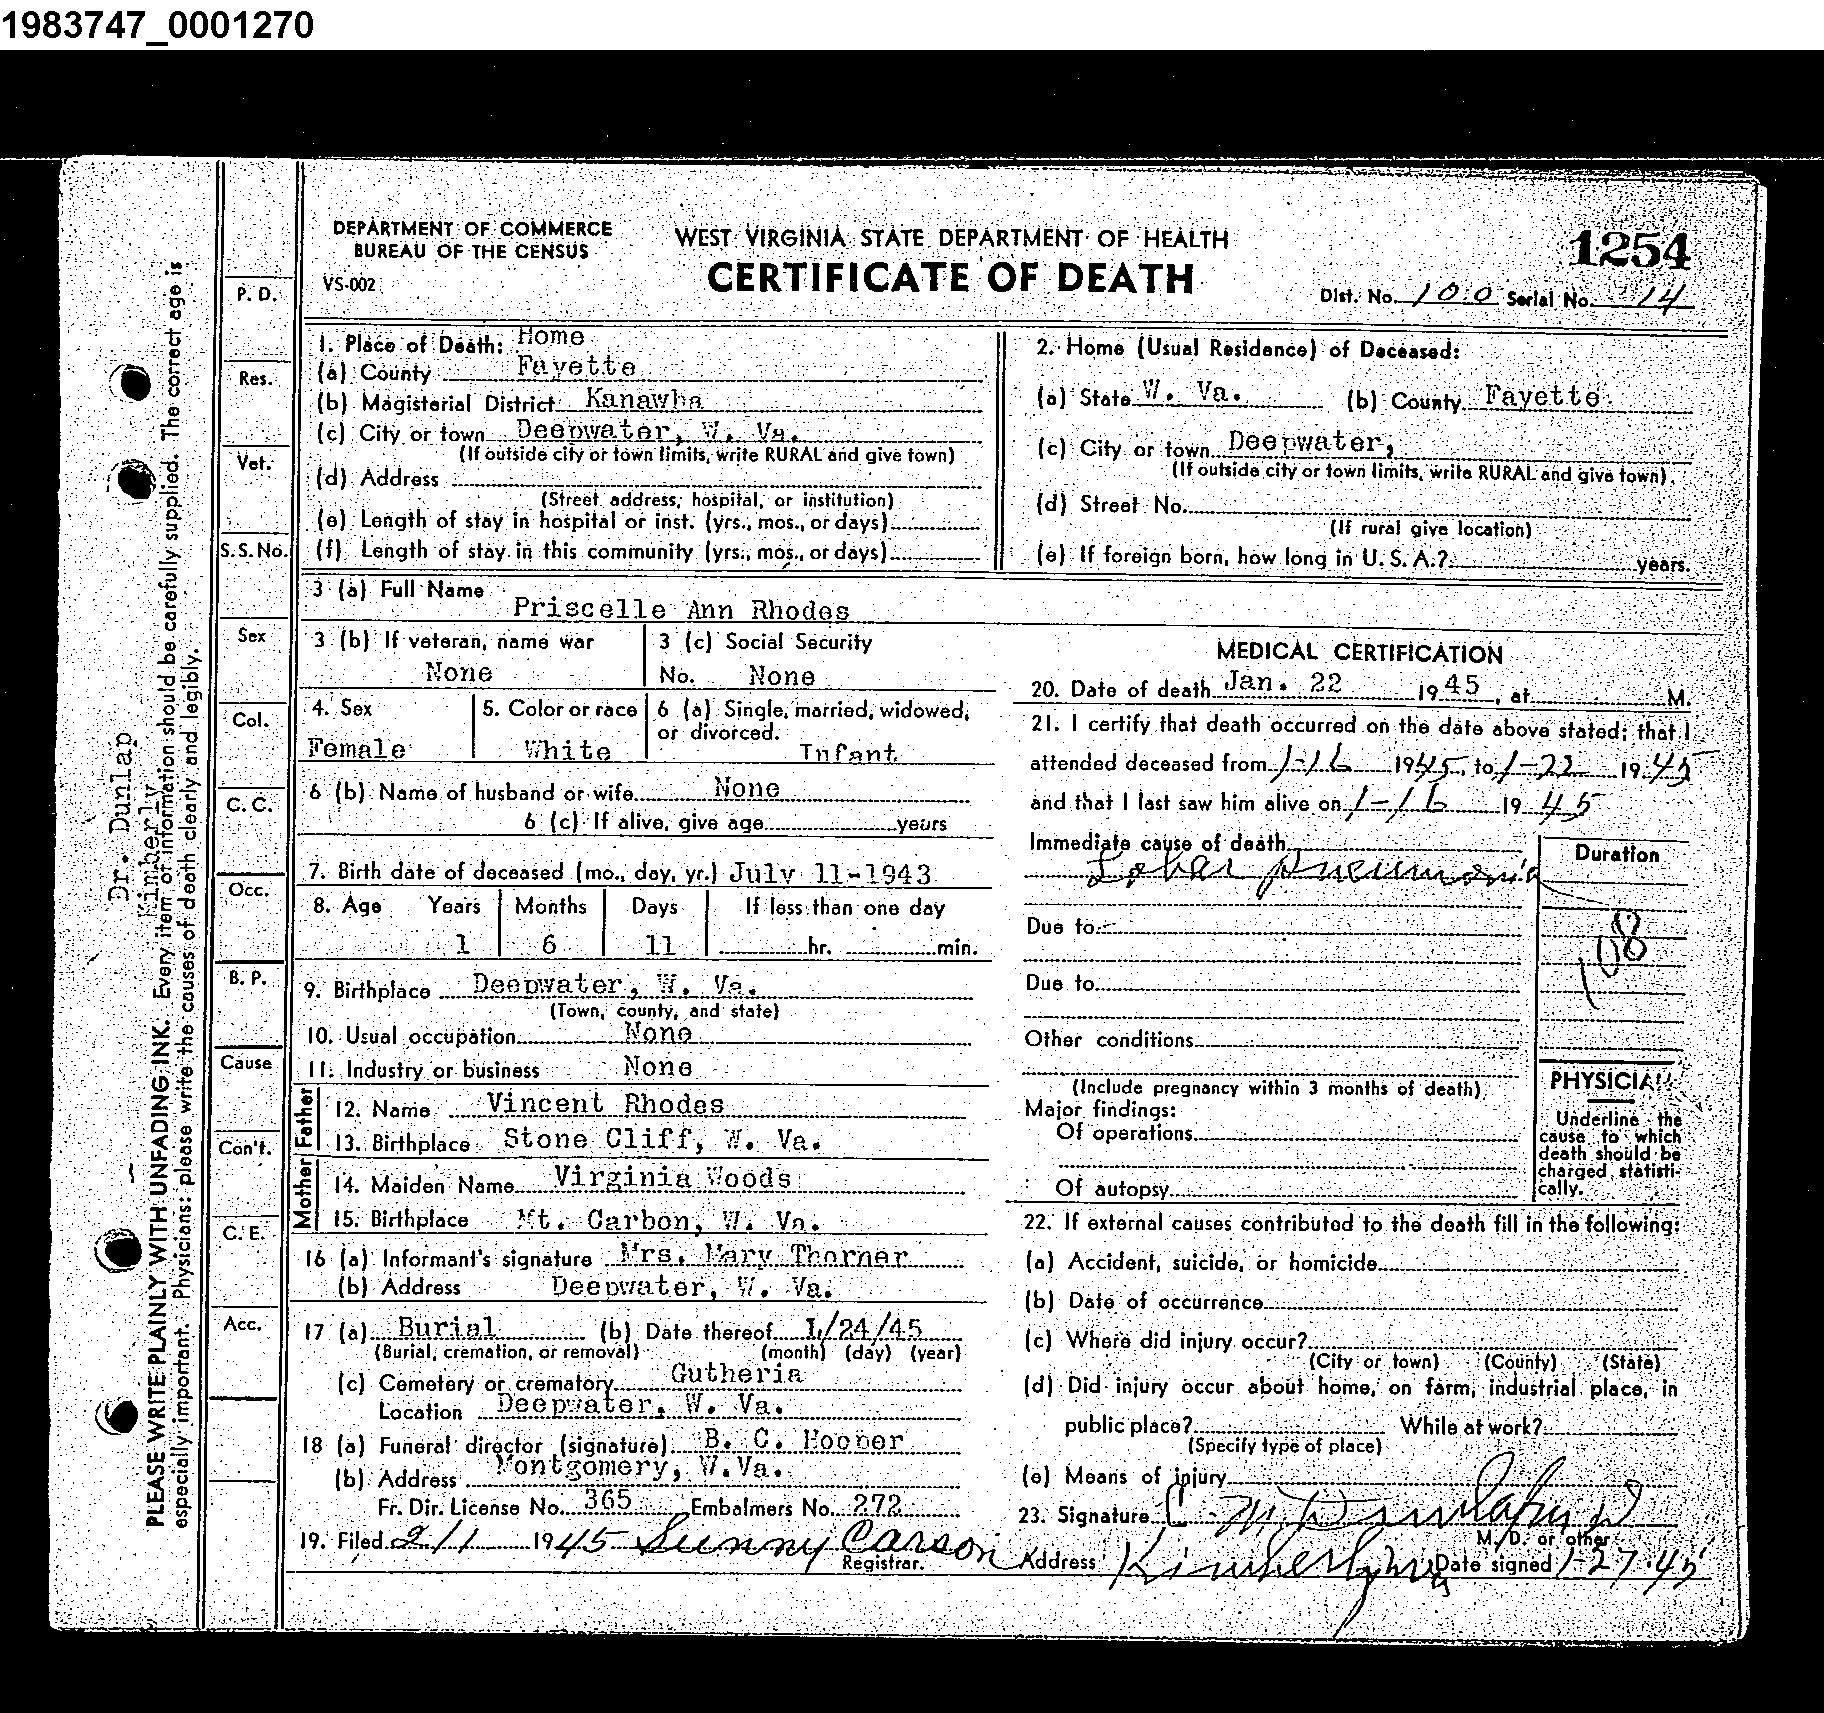 1983747_0001270
DEPARTMENT OF COMMERCE
BUREAU OF THE CENSUS
VS-002
WEST VIRGINIA STATE DEPARTMENT OF HEALTH
CERTIFICATE OF DEATH
1254
Dist. No. 100 Serial No. 14
1. Place of Death: Home
(a) County Fayette
(b) Magisterial District Kanawha
(c) City or town Deepwater, W. Va.
(If outside city or town limits, write RURAL and give town)
(d) Address
(Street address, hospital, or institution)
(e) Length of stay in hospital or inst. (yrs., mos., or days)
(f) Length of stay in this community (yrs., mos., or days)
2. Home (Usual Residence) of Deceased:
(a) State W. Va. (b) County Fayette.
(c) City or town Deepwater,
(If outside city or town limits, write RURAL and give town).
(d) Street No.
(If rural give location)
(e) If foreign born, how long in U. S. A.? years.
3 (a) Full Name
Priscelle Ann Rhodes
3 (b) If veteran, name war
None
3 (c) Social Security
No. None
4. Sex
Female
5. Color or race
White
6 (a) Single, married, widowed,
or divorced.
Infant
6 (b) Name of husband or wife None
6 (c) If alive, give age years
7. Birth date of deceased (mo., day, yr.) July 11-1943
8. Age Years Months Days If less than one day
1 6 11 hr. min.
9. Birthplace Deepwater, W. Va.
(Town, county, and state)
10. Usual occupation None
11. Industry or business None
Father
12. Name Vincent Rhodes
13. Birthplace Stone Cliff, W. Va.
Mother
14. Maiden Name Virginia Woods
15. Birthplace Mt. Carbon, W. Va.
16 (a) Informant's signature Mrs. Mary Thorner
(b) Address Deepwater, W. Va.
17 (a) Burial (b) Date thereof 1/24/45
(Burial, cremation, or removal) (month) (day) (year)
(c) Cemetery or crematory Gutheria
Location Deepwater, W. Va.
18 (a) Funeral director (signature) B. C. Hooper
(b) Address Montgomery, W.Va.
Fr. Dir. License No. 365 Embalmers No. 272
19. Filed 2/1 1945 Sunny Carson
Registrar.
MEDICAL CERTIFICATION
20. Date of death Jan. 22 1945, at M.
21. I certify that death occurred on the date above stated; that I
attended deceased from 1-16 1945, to 1-22 1945
and that I last saw him alive on 1-16 1945
Immediate cause of death
Lobar Pneumonia
Duration
Due to
108
Due to
Other conditions
(Include pregnancy within 3 months of death)
Major findings:
Of operations
Of autopsy
PHYSICIAN
Underline the
cause to which
death should be
charged statisti-
cally.
22. If external causes contributed to the death fill in the following:
(a) Accident, suicide, or homicide
(b) Date of occurrence
(c) Where did injury occur?
(City or town) (County) (State)
(d) Did injury occur about home, on farm, industrial place, in
public place? While at work?
(Specify type of place)
(e) Means of injury
23. Signature C. M. Dunlap M D
M. D. or other
Address Kimberly W Va Date signed 1-27-45
P. D.
Res.
Vet.
S. S. No.
Sex
Col.
C. C.
Occ.
B. P.
Cause
Con't.
C. E.
Acc.
Dr. Dunlap
Kimberly
PLEASE WRITE PLAINLY WITH UNFADING INK. Every item of information should be carefully supplied. The correct age is
especially important. Physicians: please write the causes of death clearly and legibly.